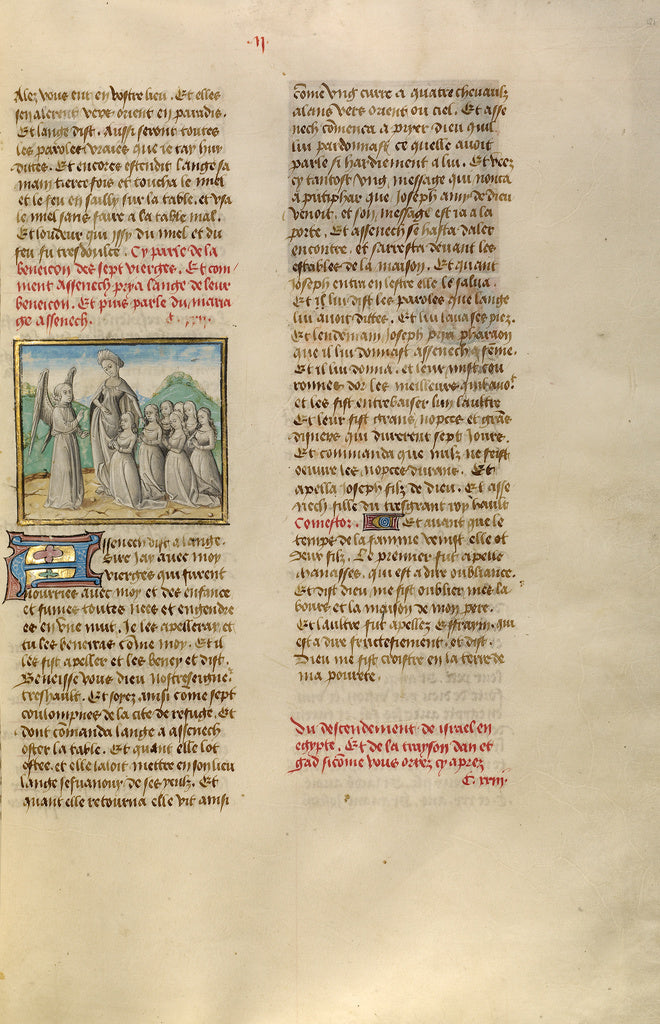 .II.
Alez vous ent en vostre lieu. Et elles
sen alerent vers orient en paradis.
Et lange dist. Aussi seront toutes
les paroles vraies que ie tay huy
dittes. Et encores estendit lange sa
main tierce fois et toucha le miel
et le feu en sailly sur la table. et usa
le miel sans faire a la table mal.
Et loudeur qui issy du miel et du
feu fu tresdoulce. Cy parle de la
beneicon des sept vierges. Et com-
ment assenech prya lange de leur
beneicon. Et puis parle du maria
ge assenech. C. xxij.
Assenech dist a lange.
Sire Jay avec moy
vierges qui furent
nourries avec moy et des enfance
et fumes toutes nees et engendre
es en une nuit. Je les apelleray et
tu les beneiras come moy. Et il
les fist apeller et les beney et dist.
Beneisse vous dieu nostre seigne
treshault. Et soyez ainsi come sept
coulompnes de la cite de refuge. Et
dont comanda lange a assenech
oster la table. Et quant elle lot
ostee. et elle laloit mettre en son lieu
lange sesvanouy de ses yeulx. Et
quant elle retourna elle vit ainsi
come ung curre a quatre chevaulx
alans vers orient ou ciel. Et asse
nech comenca a pryer dieu quil
lui pardonnast ce quelle avoit
parle si hardiement a lui. Et veez
cy tantost ung message qui nonca
a putiphar que Joseph amy de dieu
venoit. et son message est ia a la
porte. Et assenech se hasta daler
encontre. et sarresta devant les
estables de la maison. Et quant
Joseph entra en lestre elle le salua.
Et il lui dist les paroles que lange
lui avoit dittes. Et lui lava ses piez.
Et lendemain Joseph prya pharaon
que il lui donnast assenech a feme.
Et il lui dona. et leur mist cou
ronnes dor les meilleurs quil avoit
et les fist entrebaiser lun laultre
Et leur fist grans nopces et grans
disners qui durerent sept Jours.
Et commanda que nulz ne feist
oeuvre les nopces durans. Et
apella Joseph filz de dieu. Et asse
nech fille du tresgrant roy hault
Comestor. Et avant que le
temps de la famine venist elle ot
deux filz. Le premier fut apelle
Manasses. qui est a dire oubliance.
Et dist dieu me fist oublier mes la
bours et la maison de mon pere.
Et laultre fut apellez Effrayin. qui
est a dire fructefiement. et dist.
Dieu me fist croistre en la terre de
ma povrete.
Du descendement de israel en
egypte. Et de la trayson dan et
gad sicome vous orrez cy aprez
C. xxiij.